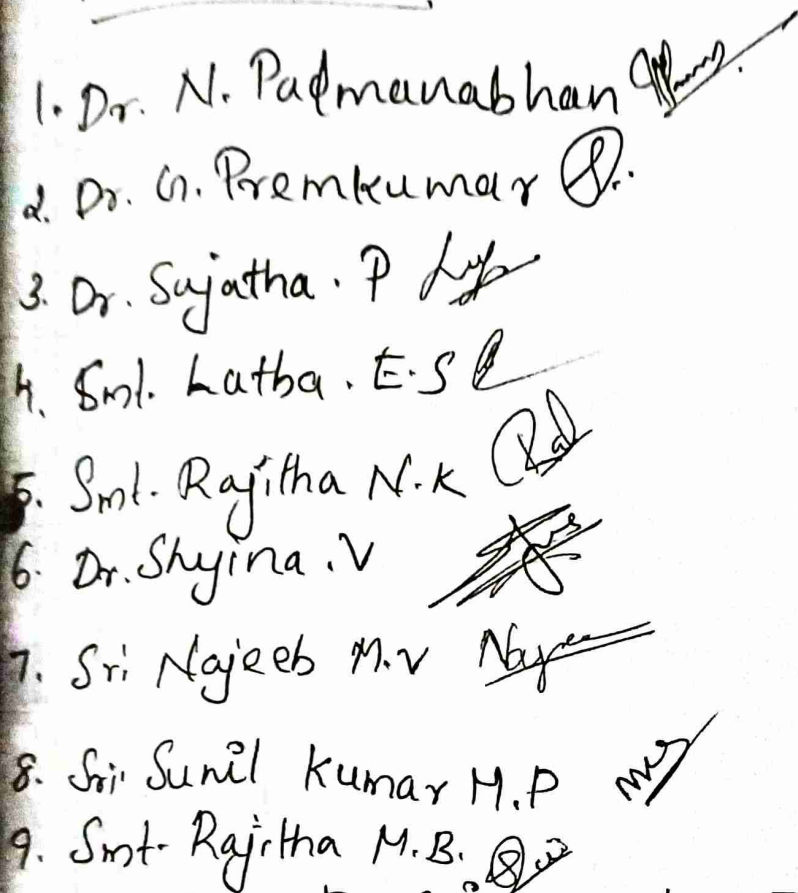 1. Dr. N. Padmanabhan
2. Dr. G. Premkumar
3. Dr. Sujatha. P
4. Smt. Latha. E.S
5. Smt. Rajitha N.K
6. Dr. Shyina. V
7. Sri Najeeb M.V
8. Sri Sunil Kumar M.P
9. Smt. Rajitha M.B.